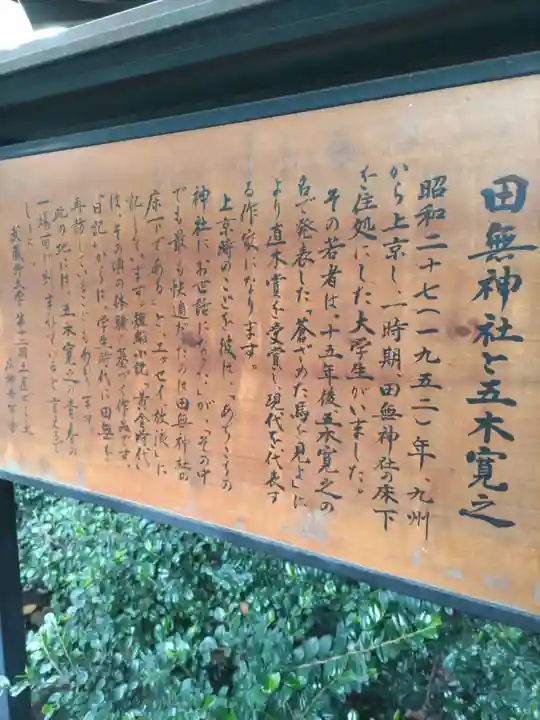 田無神社と五木寛之
昭和二十七(一九五二)年、九州
から上京し、一時期、田無神社の床下
を住処にした大学生がいました。
その若者は、十五年後五木寛之の
名で発表した「蒼ざめた馬を見よ」に
より直木賞を受賞し、現代を代表す
る作家になります。
上京時のことを彼は、「あちこちの
神社にお世話になった」が、「その中
でも最も快適だったのは田無神社の
床下である」と、エッセイ「放浪」に
記しています。短編小説「黄金時代」
は、その頃の体験に基づく作品です。
「日記」からは、学生時代に田無を
再訪していることもわかります。
此の地には、五木寛之の青春の
一場面が刻まれていると言えるで
しょう。
武蔵野大学 第十二期土屋ゼミ